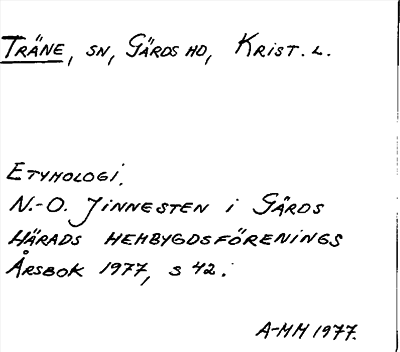 TRÄNE, SN, GÄRDS HD, KRIST. L.
ETYMOLOGI.
N.-O. JINNESTEN i GÄRDS
HÄRADS HEMBYGDSFÖRENINGS
ÅRSBOK 1977, S 42.
A-MM 1977.